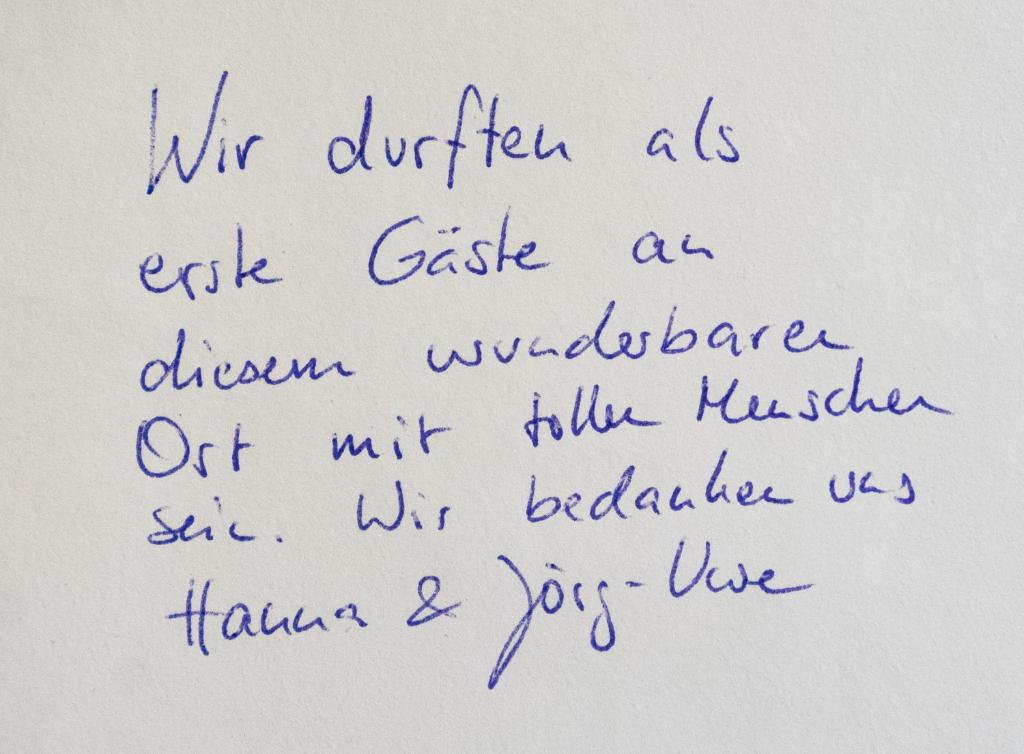 Wir durften als
erste Gäste an
diesem wunderbaren
Ort mit tollen Menschen
sein. Wir bedanken uns
Hanna & Jörg-Uwe